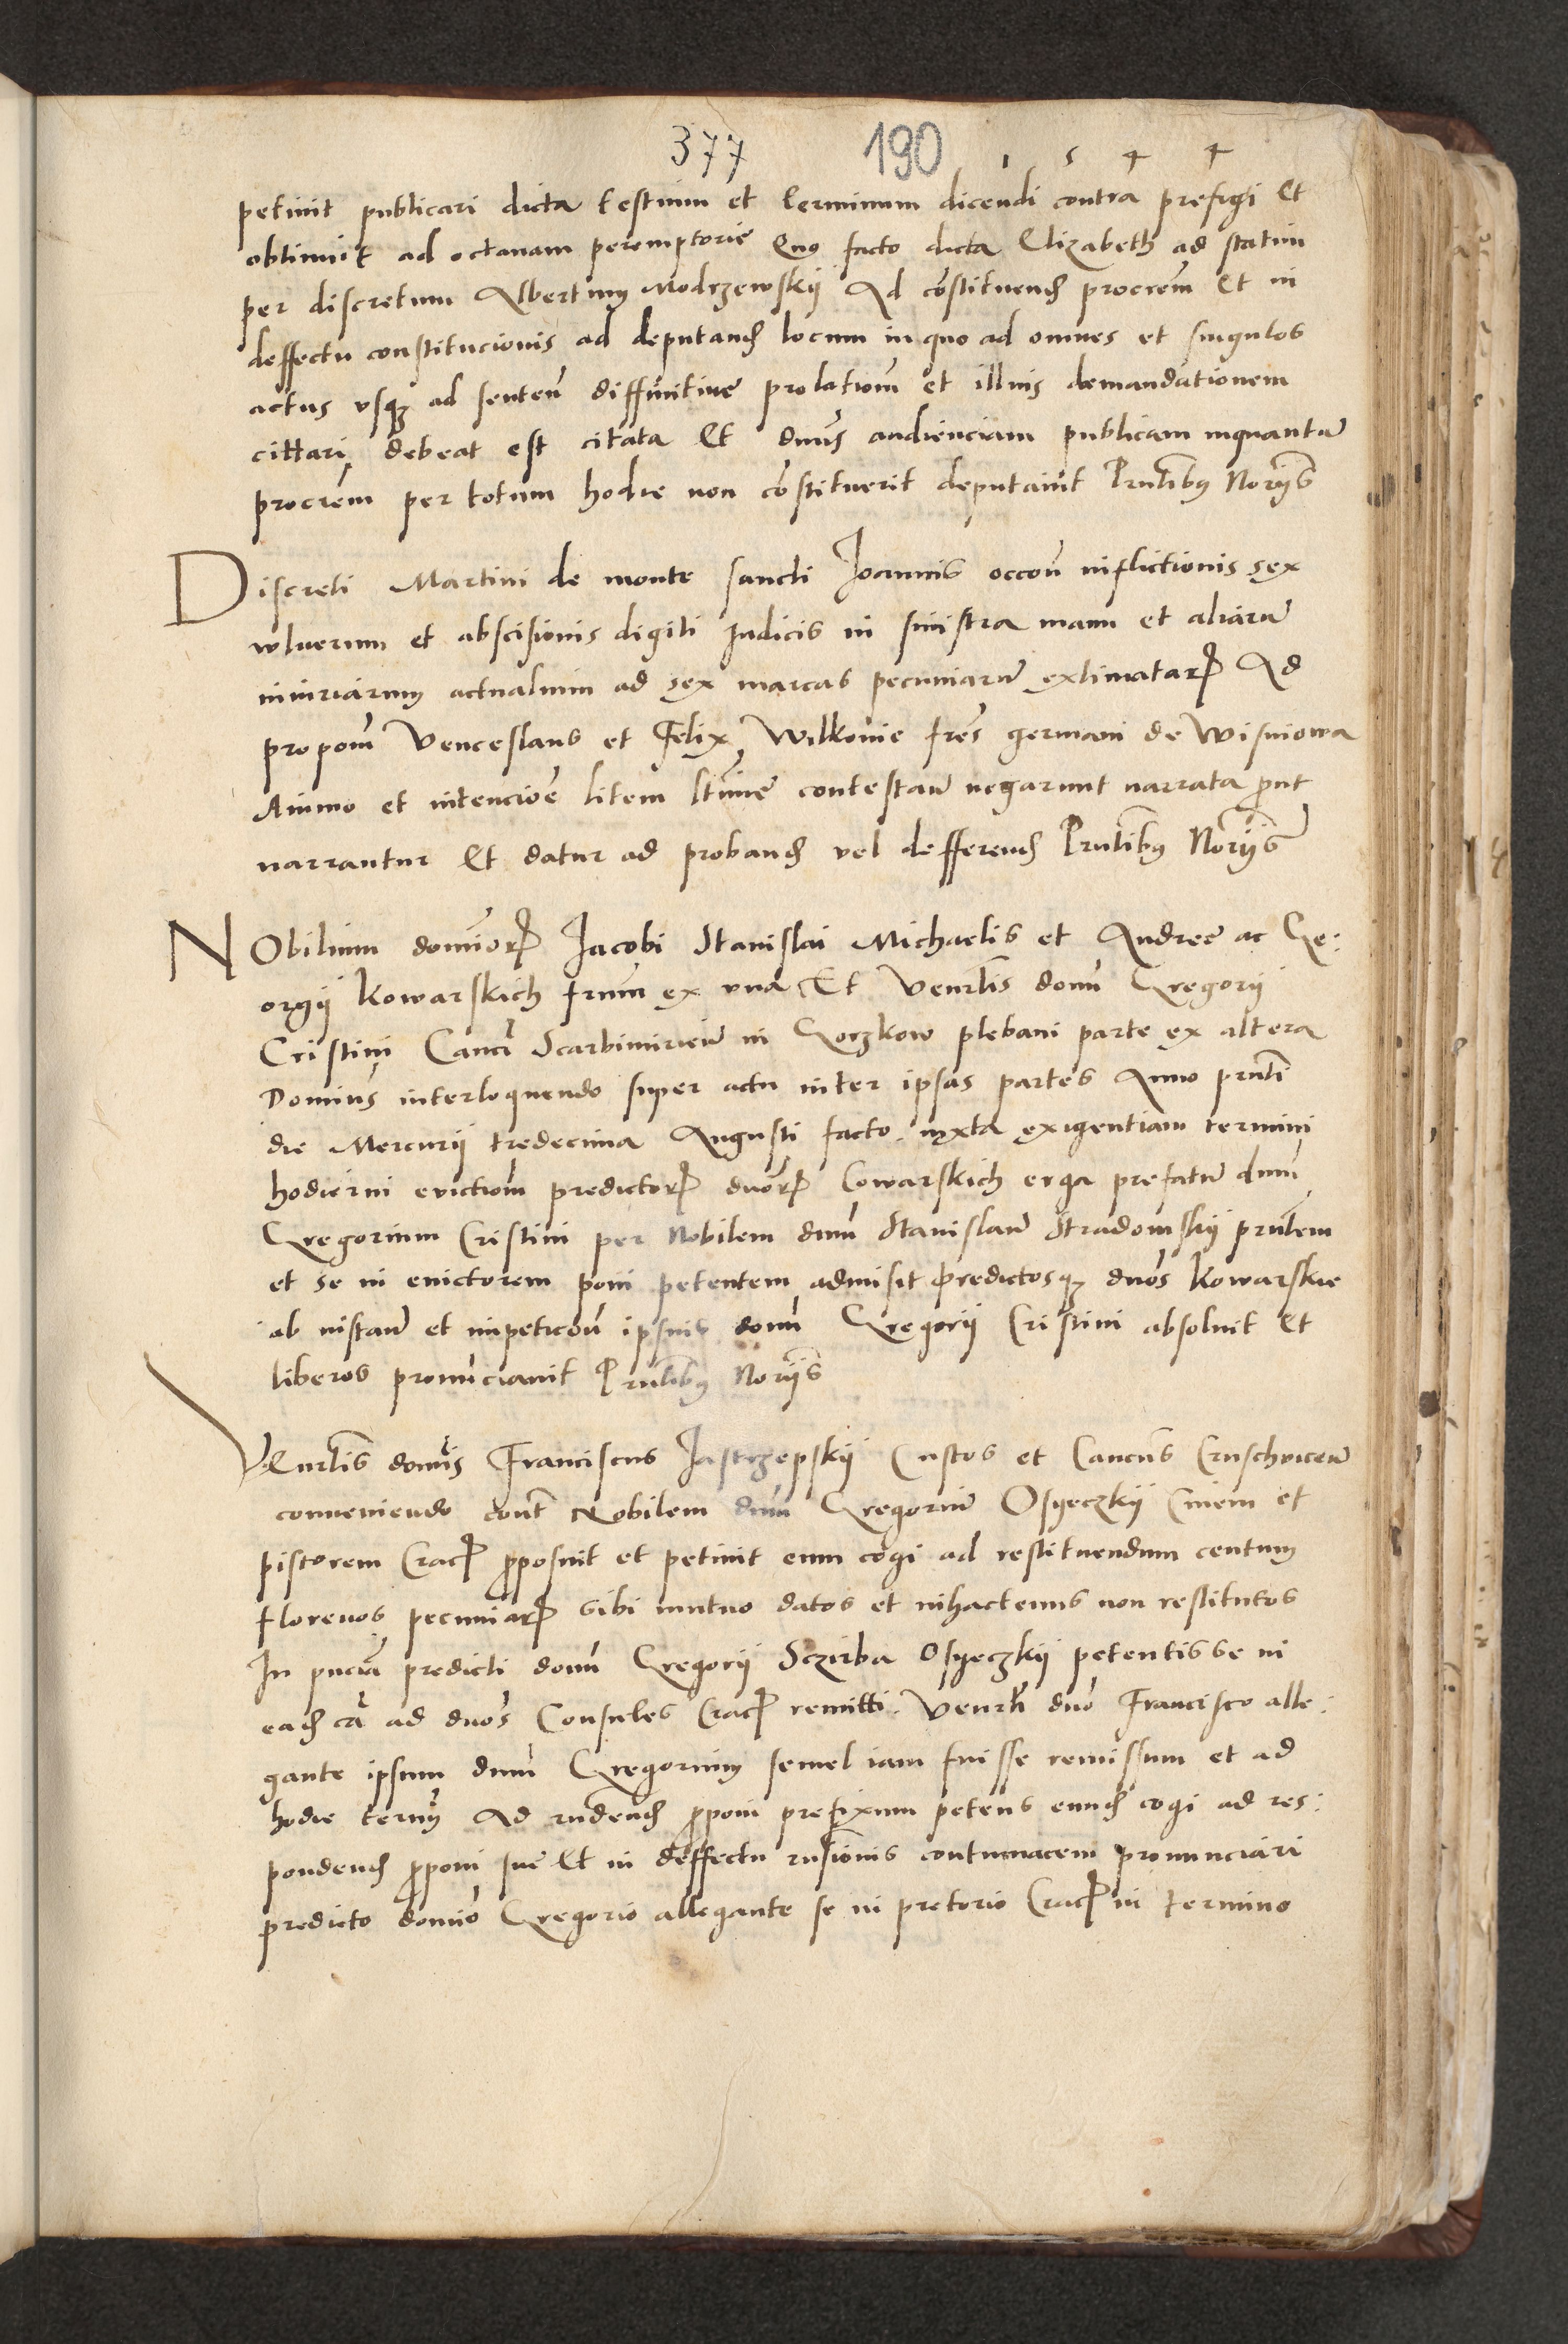 377 190 1544
petiuit publicari dicta testium et terminum dicendi contra prefigi Et
obtinuit ad octauam peremptorie Quo facto dicta Elizabeth ad statim
per discretum Albertum Modrzewskij Ad cōstituend procrem̄ Et in
deffectu constitucionis ad deputand locum in quo ad omnes et singulos
actus vsqȝ ad senten̄ diffinitiue prolationē et illius demandationem
cittari debeat est citata Et dnūs audienciam publicam inquantū
procrem̄ per totum hodie non cōstituerit deputauit Prn̄tibus Norijs
Discreti Martini de monte sancti Joannis occoñ inflictionis sex
wlnerum et abscisionis digiti indicis in sinistra manu et aliarū
iniuriarum actualium ad sex marcas pecuniarū extimatarꝝ Ad
propoñ Venceslaus et Felix Wilkonie frēs germani de Wisniowa
Animo et intencioē litem ltīme contestan̄ negarunt narrata ꝓut
narrantur Et datur ad proband vel defferend Prn̄tibus Norijs
NObilium dominorꝝ Jacobi Stanislai Michaelis et Andree ac Ge:
orgij Kowarskich frūm ex vna Et Venrl̄is domī Gregorij
Cristini Canci Scarbimirien̄ in Goczkow plebani parte ex altera
Dominus interloquendo super actu inter ipsas partes Anno prn̄ti
die Mercurij tredecima Augusti facto iuxta exigentiam termini
hodierni euictionē predictorꝝ dnorꝝ Cowarskich erga prefatū dnum
Gregorium Cristini per Nobilem dnm̄ Stanislaū Stradomskij prn̄tem
et se in euictorem poni petentem admisit predictosqȝ dnōs Kowarskie
ab instan̄ et impeticōn ipsius domī Gregorij Cristini absoluit Et
liberos pronunciauit Prn̄tibus Norijs
VEnrl̄is domīs Franciscus Jastrzepskij Custos et Cancūs Cruschuicen̄
conueniendo cont̄ Nobilem dnm̄ Gregoriū Osyeczkij Ciuem et
pistorem Cracꝝ ꝓposuit et petiuit eum cogi ad restituendum centum
florenos pecuniarꝝ sibi mutuo datos et inhactenus non restitutos
In pn̄cia predicti domī Gregorij Sczirba Osyeczkij petentis se in
ead cā ad dnōs Consules Cracꝝ remitti. Venrl̄i dnō Francisco alle:
gante ipsum dnm̄ Gregorium semel iam fuisse remissum et ad
hodie termm̄ Ad rn̄dend ꝓponi prefixum petens eund cogi ad res:
pondend ꝓponi sue Et in deffectu rn̄sionis contumacem pronunciari
predicto dominō Gregorio allegante se in pretorio Cracꝝ in termino